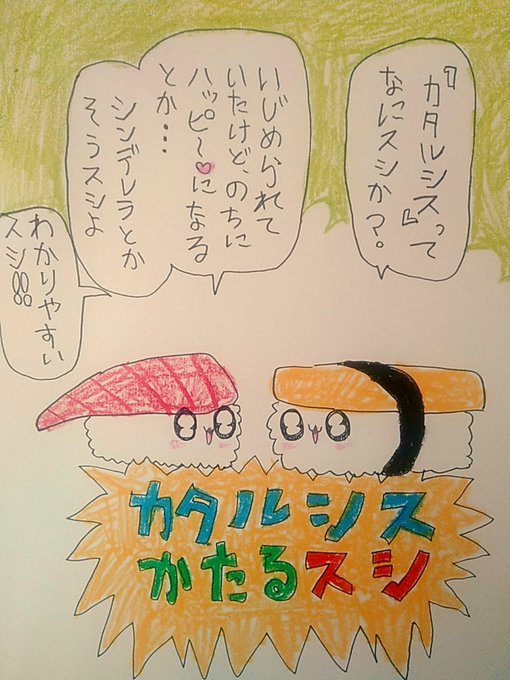 『カタルシスって
なにスシか？』
いじめられて
いたけど、のちに
ハッピ〜♡になる
とか…
シンデレラとか
そうスシよ
わかりやすい
スシ!!!
カタルシス
かたるスシ